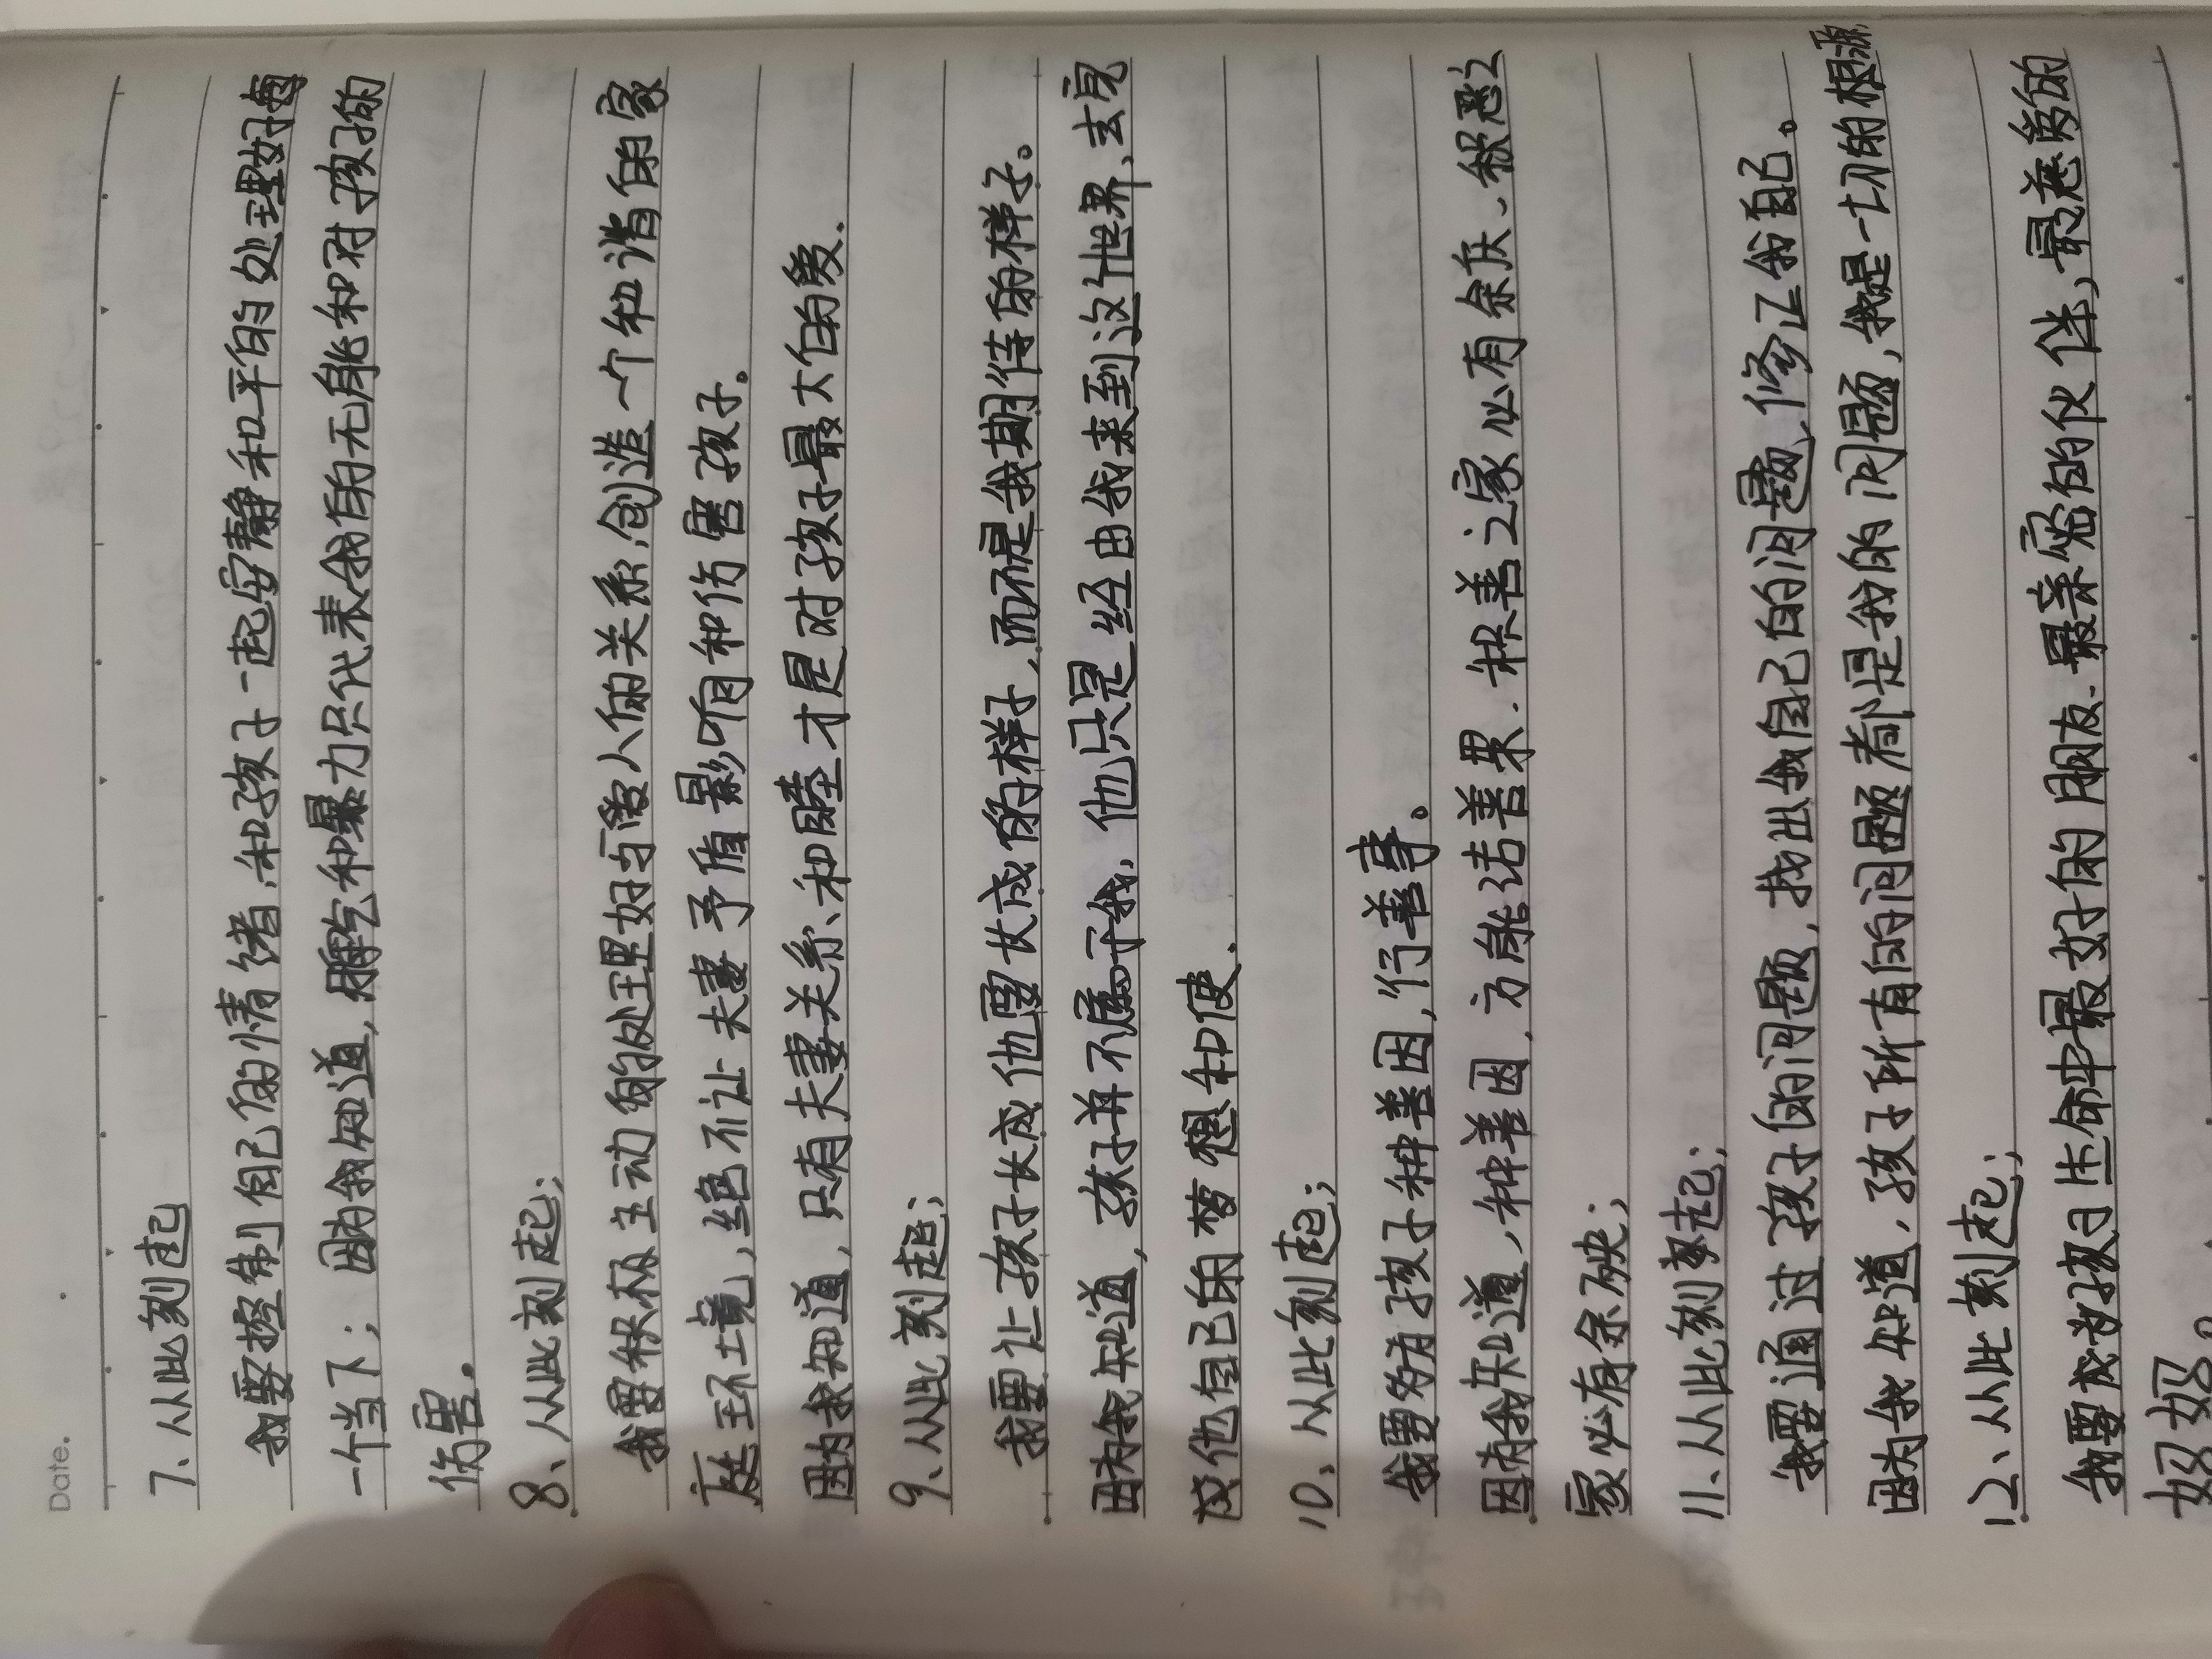 Date.
7、从此刻起
我要控制自己的情绪,和孩子一起安静和平的处理好每
一个当下; 因为我知道,脾气和暴力只代表我的无能和对孩子的
伤害.
8、从此刻起;
我要积极主动的处理好与爱人的关系,创造一个和谐的家
庭环境,绝不让夫妻矛盾影响和伤害孩子。
因为我知道,只有夫妻关系和睦才是对孩子最大的爱.
9、从此刻起;
我要让孩子长成他要长成的样子,而不是我期待的样子。
因为我知道,孩子并不属于我,他只是经由我来到这个世界,去完
成他自己的梦想和使.
10、从此刻起;
我要多为孩子种善因,行善事。
因为我知道,种善因,方能结善果.积善之家必有余庆、积恶之
家必有余殃;
11、从此刻起;
我要通过孩子的问题,找出我自己的问题,修正我自己。
因为我知道,孩子所有的问题都是我的问题,我是一切的根源
12、从此刻起;
我要成为孩子生命中最好的朋友、最亲密的伙伴,最慈爱的
妈妈。